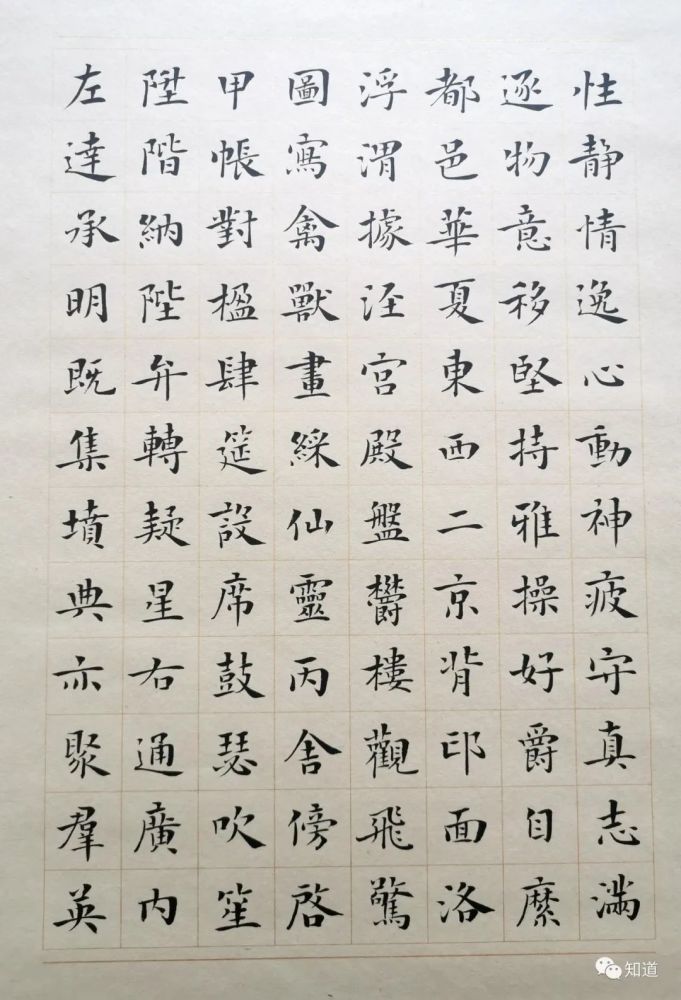 性静情逸心動神疲守真志滿
逐物意移堅持雅操好爵自縻
都邑華夏東西二京背邙面洛
浮渭據涇宮殿盤鬱樓觀飛驚
圖寫禽獸畫綵仙靈丙舍傍啓
甲帳對楹肆筵設席鼓瑟吹笙
陞階納陛弁轉疑星右通廣內
左達承明既集墳典亦聚羣英
知道